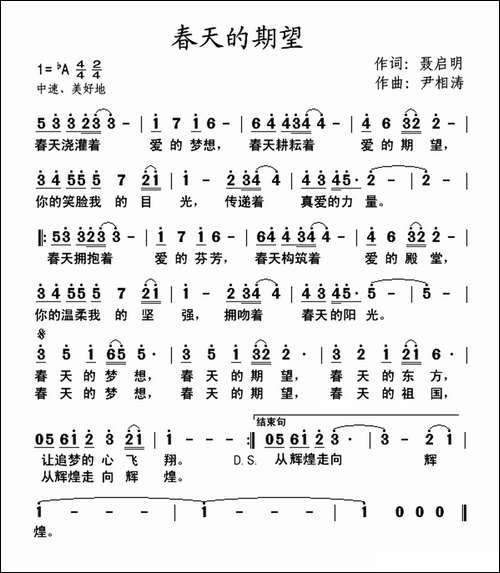 春天的期望
1=♭A 4/4 2/4
作词：聂启明
中速、美好地
作曲：尹相涛
5 3 3 2 3 3 - | 1 7 1 6 - | 6 4 4 3 4 4 - | 4 6 3 2 2 - |
春天浇灌着 爱的梦想，春天耕耘着 爱的期望，
3 4 5 5 5 7 2 1 | 1 - 2 3 4 4 | 3 4 4 5· 2 - | 2 - - - |
你的笑脸我的目光，传递着 真爱的力量。
‖: 5 3 3 2 3 3 - | 1 7 1 6 - | 6 4 4 3 4 4 - | 4 6 3 2 2 - |
春天拥抱着 爱的芬芳，春天构筑着 爱的殿堂，
3 4 5 5 5 7 2 1 | 1 - 2 3 4 4 | 3 4 4 5· 5 - | 5 - - - |
你的温柔我的坚强，拥吻着 春天的阳光。
3 5 1 6 5 5· | 3 5 1 3 2 2· | 3 2 1 2 1 6· |
春天的梦想，春天的期望，春天的东方，
春天的梦想，春天的期望，春天的祖国，
结束句
0 5 6 1 2 3 2 1 | 1 - - - :‖ 0 5 6 1 2 3· | 3 - 2 1 |
让追梦的心飞翔。 D.S. 从辉煌走向 辉
从辉煌走向辉煌。
1 - - - | 1 - - - | 1 - - - | 1 0 0 0 ‖
煌。